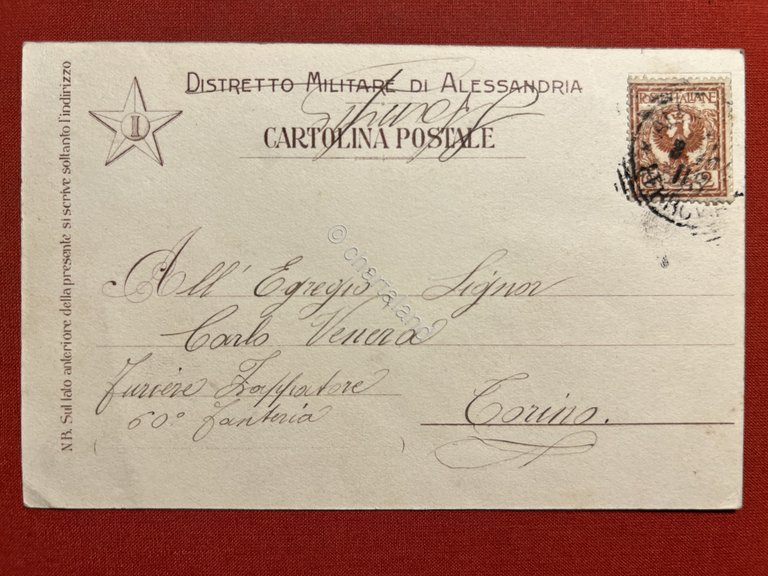 DISTRETTO MILITARE DI ALESSANDRIA
CARTOLINA POSTALE
I
POSTE ITALIANE
2
8
11
FERROVIA
All' Egregio Signor
Carlo Venera
Furiere Zappatore
60° Fanteria
Torino.
NB. Sul lato anteriore della presente si scrive soltanto l'indirizzo
© chartaland